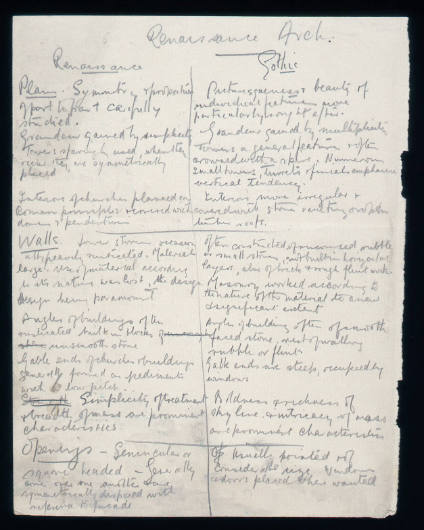 Renaissance Arch.
Renaissance
Plan. Symmetry & proportion
of part to part carefully
studied.
Grandeur gained by simplicity
Towers sparingly used, when they
occur they are symmetrically
placed
Interiors of churches planned on
Roman principles & covered with
domes & pendentives
Walls.
large. Use of material according
to its nature was lost, the design
design being paramount
Angles of buildings often
rusticated built in blocks of
unsmooth stone
Gable ends of churches & buildings
generally formed as pediments
with low pitch.
Simplicity of treatment
& breadth of mass are prominent
characteristics
Openings - Semicircular or
square headed - Generally
come over one another &
symmetrically disposed with
reference to facade
Gothic
Picturesqueness & beauty of
individual features more
particularly sought after.
Grandeur gained by multiplicity
Towers a general feature & often
crowned with a spire. Numerous
small towers, turrets & finials emphasize
vertical tendency.
Interiors more irregular &
covered with stone vaulting or open
timber roofs.
Often constructed of uncoursed rubble
or small stones, not built in horizontal
layers, also of brick & rough flint work
Masonry worked according to
the nature of the material to a most
significant extent
Angles of building often of smooth
faced stone, rest of walling
rubble or flint
Gable ends are steep, occupied by
windows
Boldness & richness of
sky line & intricacy of mass
are prominent characteristics
Usually pointed & of
considerable size. Windows
& doors placed where wanted